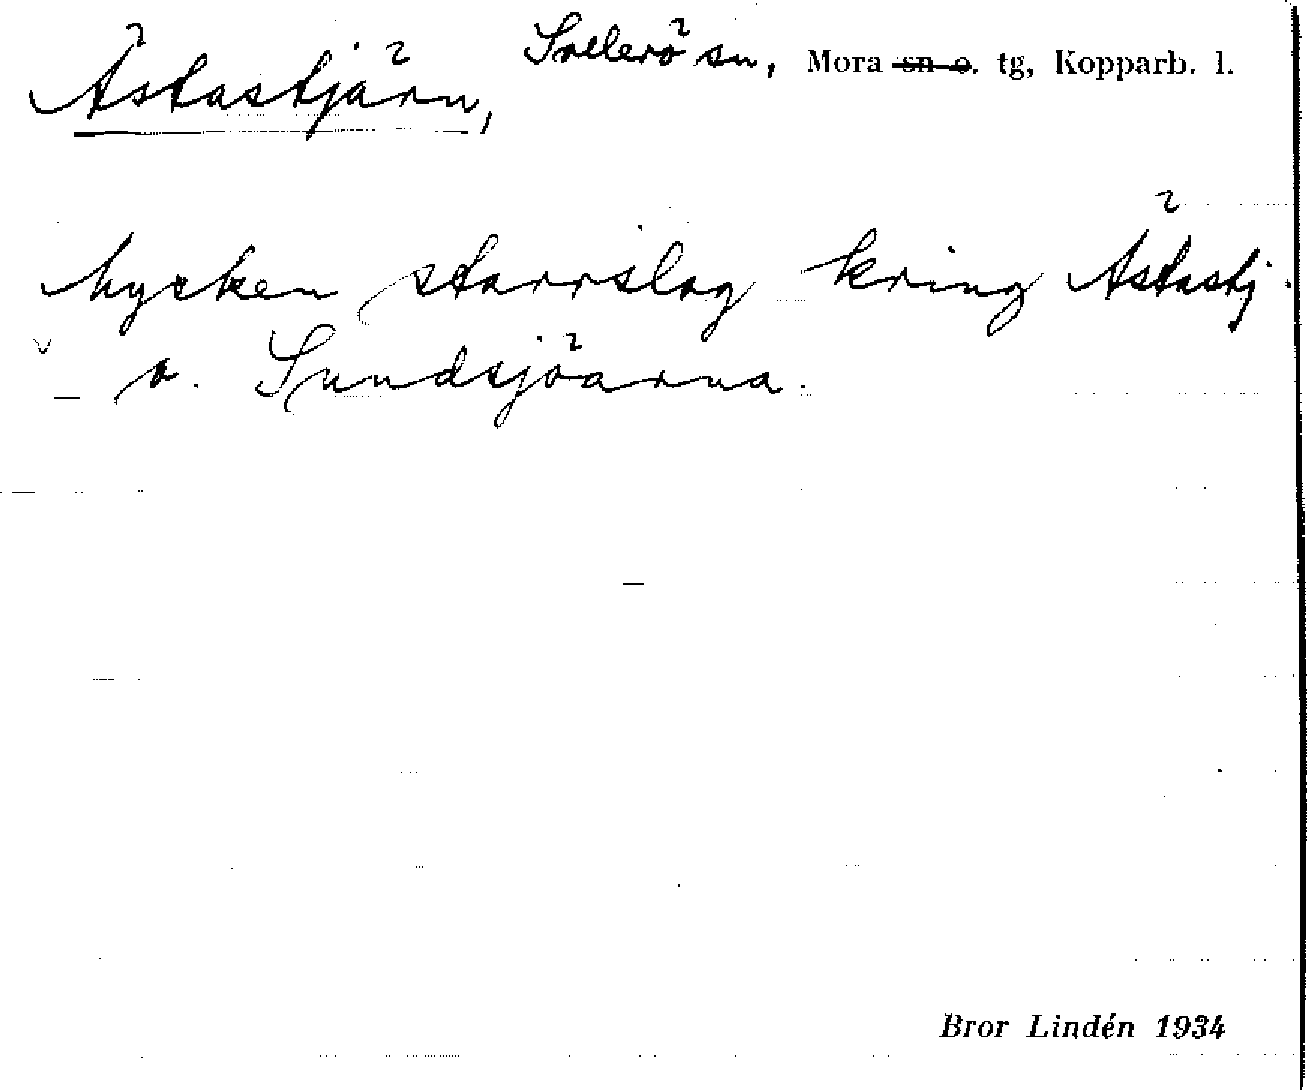 Ästastjärn, Sollerö sn, Mora sn o. tg, Kopparb. l.
Mycken starrslog kring Ästastj.
o. Sundsjöarna.
Bror Lindén 1934